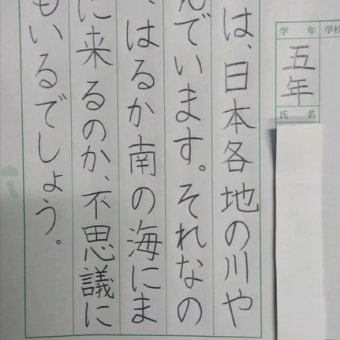 学年
学校
五年
氏名
は、日本各地の川や
んでいます。それなの
、はるか南の海にま
に来るのか、不思議に
もいるでしょう。